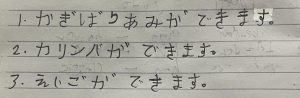 1. かぎばりあみが できます。
2. カリンバが できます。
3. えいごが できます。